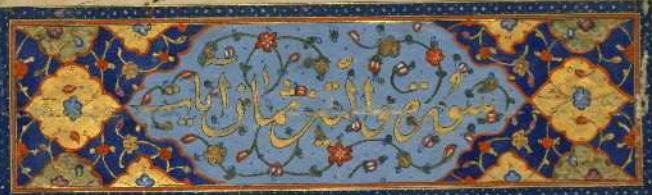 سورة والتین ثمان آیات